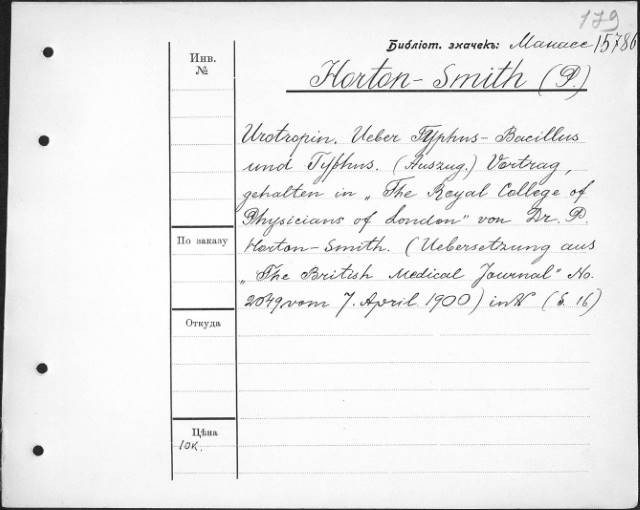 179
Библіот. значекъ: Манасс 15786
Инв.
№
Horton-Smith (P.)
Urotropin. Ueber Typhus-Bacillus
und Typhus. (Auszug.) Vortrag,
gehalten in „The Royal College of
Physicians of London" von Dr. P.
Horton-Smith. (Uebersetzung aus
„The British Medical Journal" No.
2049 vom 7. April 1900) in (S. 16)
По заказу
Откуда
Цѣна
10к.